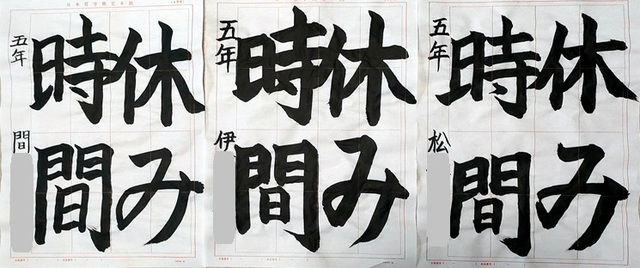 休み
時間
五年 間
休み
時間
五年 伊
休み
時間
五年 松